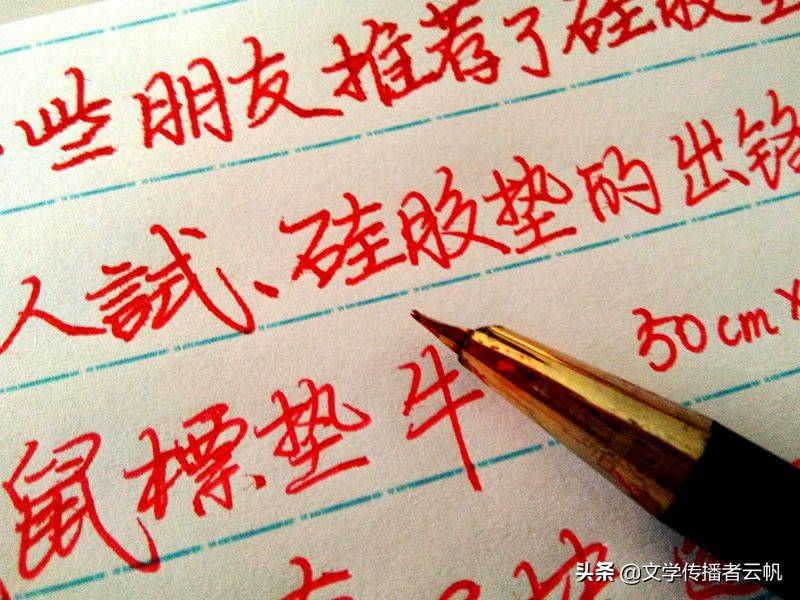 些朋友推荐了硅胶垫
人試、硅胶垫的出铬
鼠標垫 牛 30cm×
头条 @文学传播者云帆